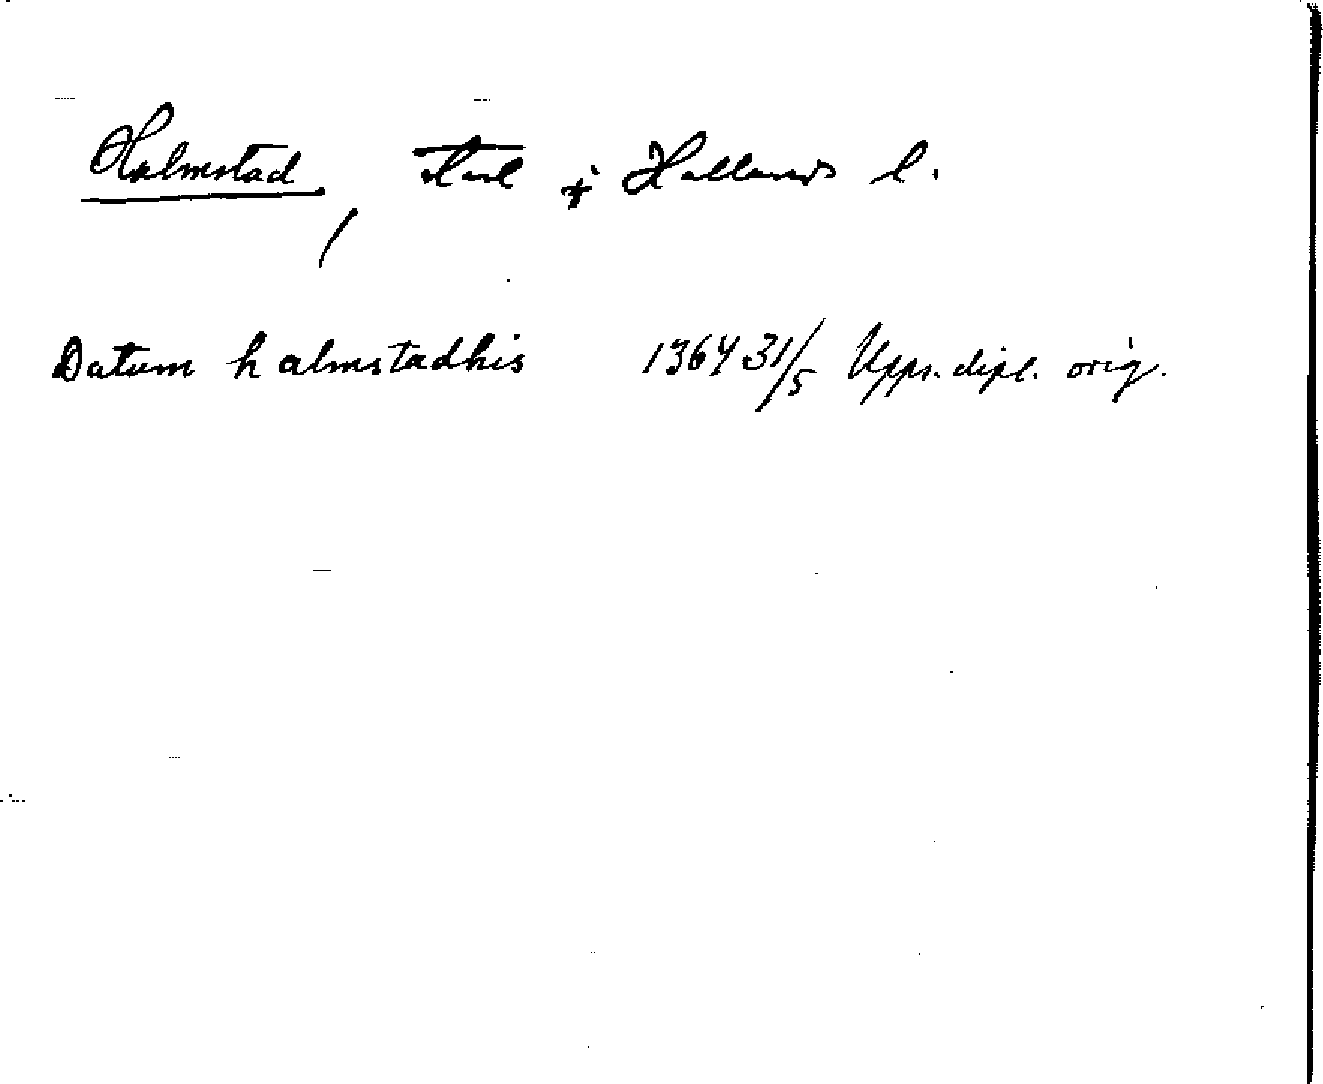 Halmstad, stad i Hallands l.
Datum halmstadhis 1364 31/5 Upps. dipl. orig.